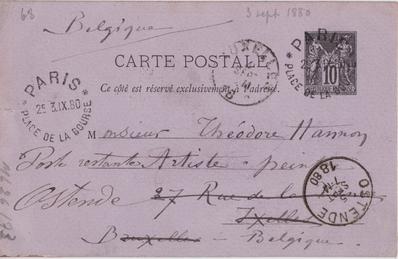 63
3 sept 1880
Belgique
CARTE POSTALE
Ce côté est réservé exclusivement à l'adresse.
10
PARIS
PLACE DE LA BOURSE
2E 3.IX.80
PARIS
PLACE DE LA BOURSE
Monsieur Théodore Hannon
Poste restante Artiste-peintre
Ostende 27 Rue de la
Ixelles
Bruxelles - Belgique.
OSTENDE
5
SEPT
1880